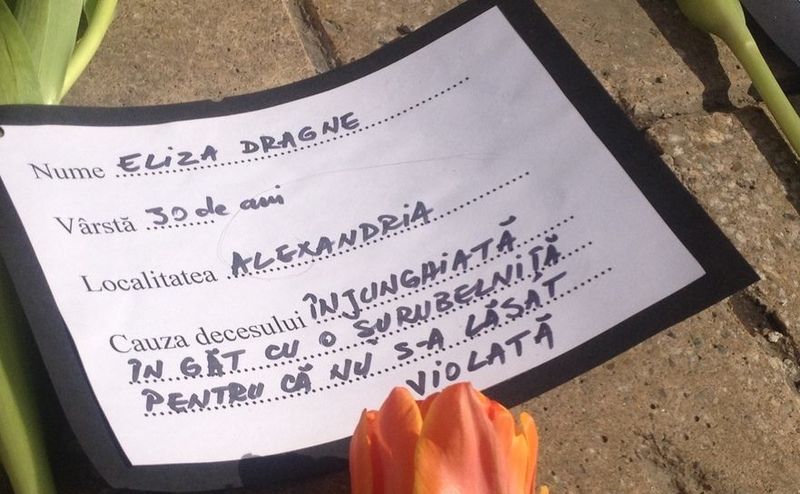 Nume ELIZA DRAGNE
Vârstă 30 de ani
Localitatea ALEXANDRIA
Cauza decesului ÎNJUNGHIATĂ
ÎN GÂT CU O ȘURUBELNIȚĂ
PENTRU CĂ NU S-A LĂSAT
VIOLATĂ